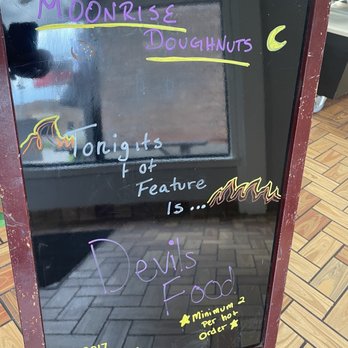 MOONRISE
DOUGHNUTS
Tonigits
Hot
Feature
Is...
Devils
Food
Minimum 2
per hot
Order